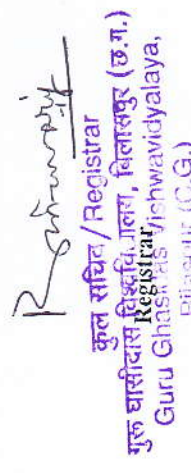 कुल सचिव/Registrar
गुरू घासीदास विश्वविद्यालय, बिलासपुर (छ.ग.)
Registrar
Guru Ghasidas Vishwavidyalaya,
Bilaspur (C.G.)